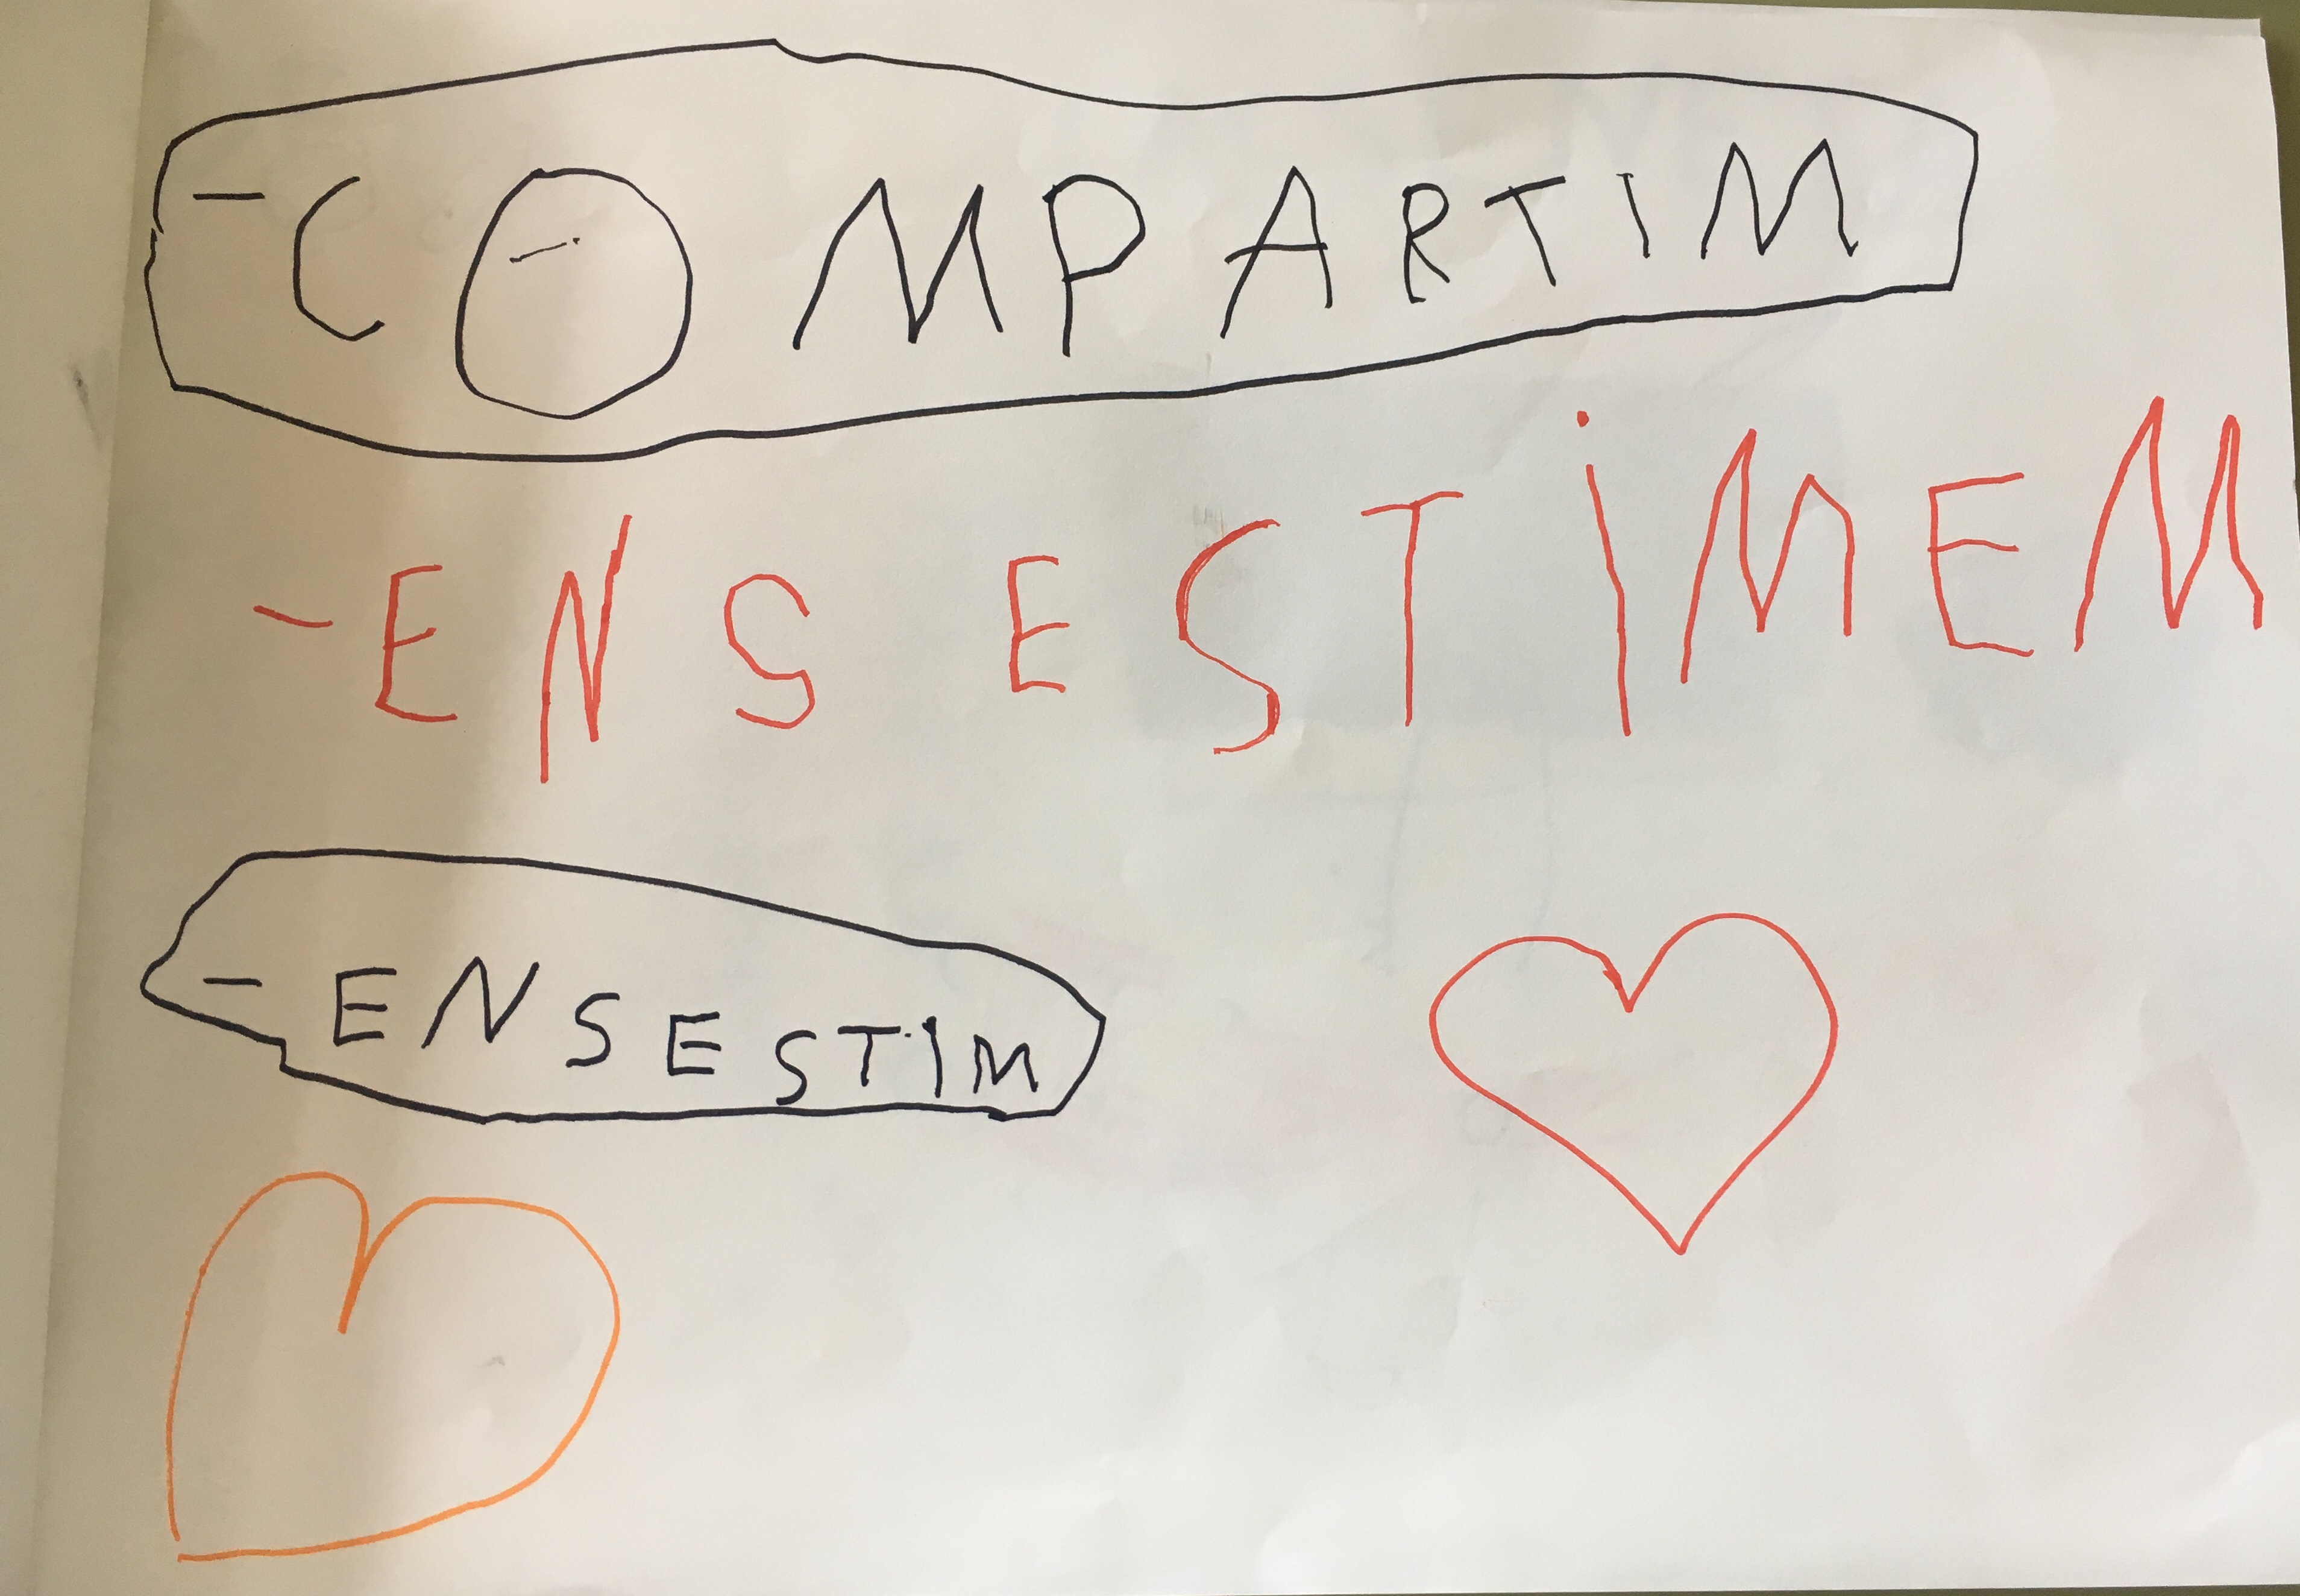 -COMPARTIM
-ENS ESTIMEM
-ENS ESTIM